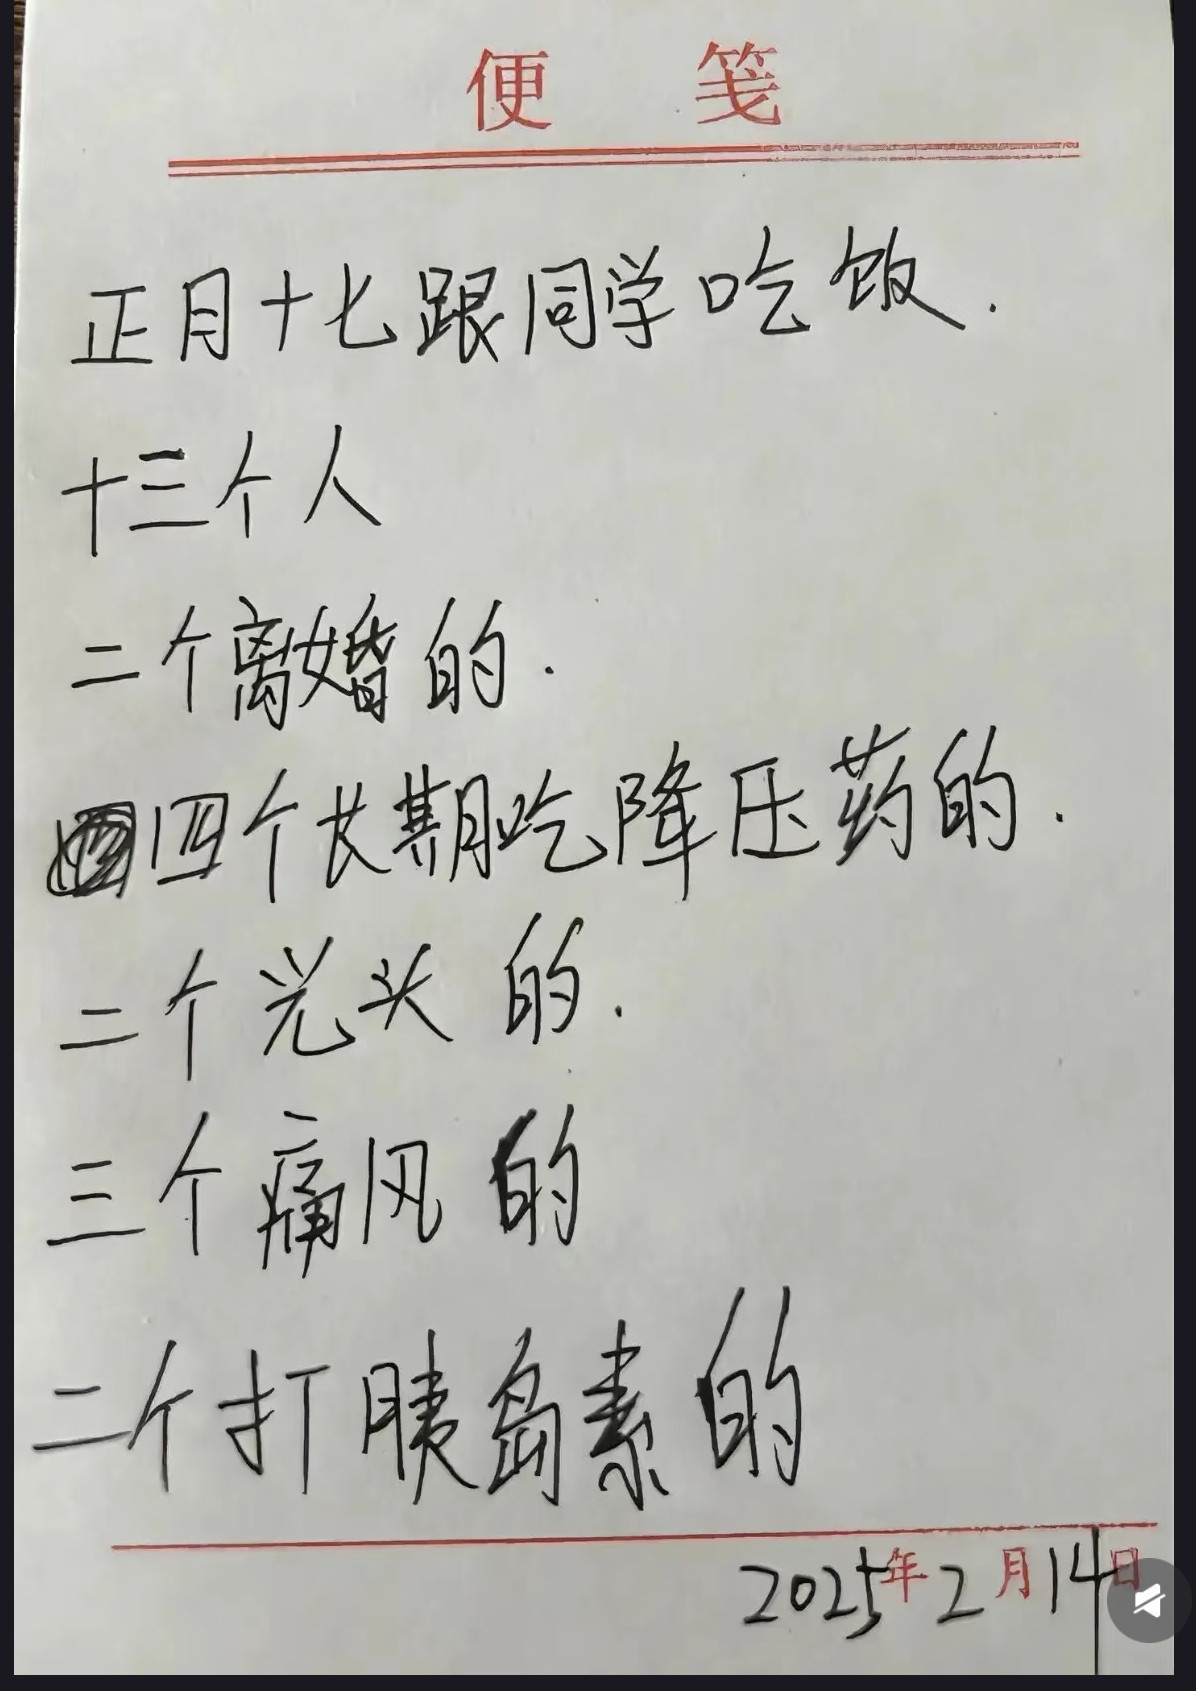 便 笺
正月十七跟同学吃饭.
十三个人
二个离婚的.
四个长期吃降压药的.
二个光头的.
三个痛风的
二个打胰岛素的
2025年2月14日